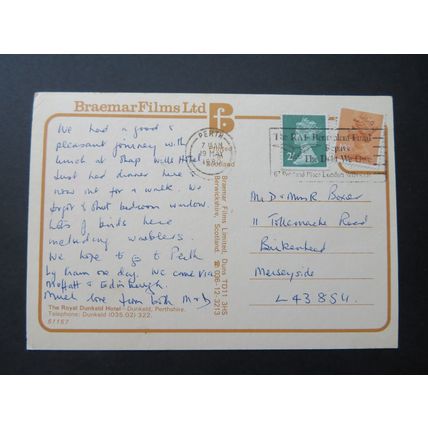 Braemar Films Ltd
Bf.
We had a good &
pleasant journey with
lunch at Shap Wells Hotel
Just had dinner here &
now out for a walk. We
forgot to shut bedroom window.
Lots of birds here
including warblers.
We hope to go to Perth
by train one day. We came via
Moffatt & Edinburgh.
Much love from both M & D
The Royal Dunkeld Hotel – Dunkeld, Perthshire.
Telephone: Dunkeld (035.02) 322.
Printed
Scotland
Braemar Films, Limited, Duns TD11 3HS
Berwickshire, Scotland.
PERTH
The RAF Benevolent Fund
Repays
The Debt We Owe
2
Mr D & Mrs R Boxer
11 Tollemache Road
Birkenhead
Merseyside
L43 8SU.